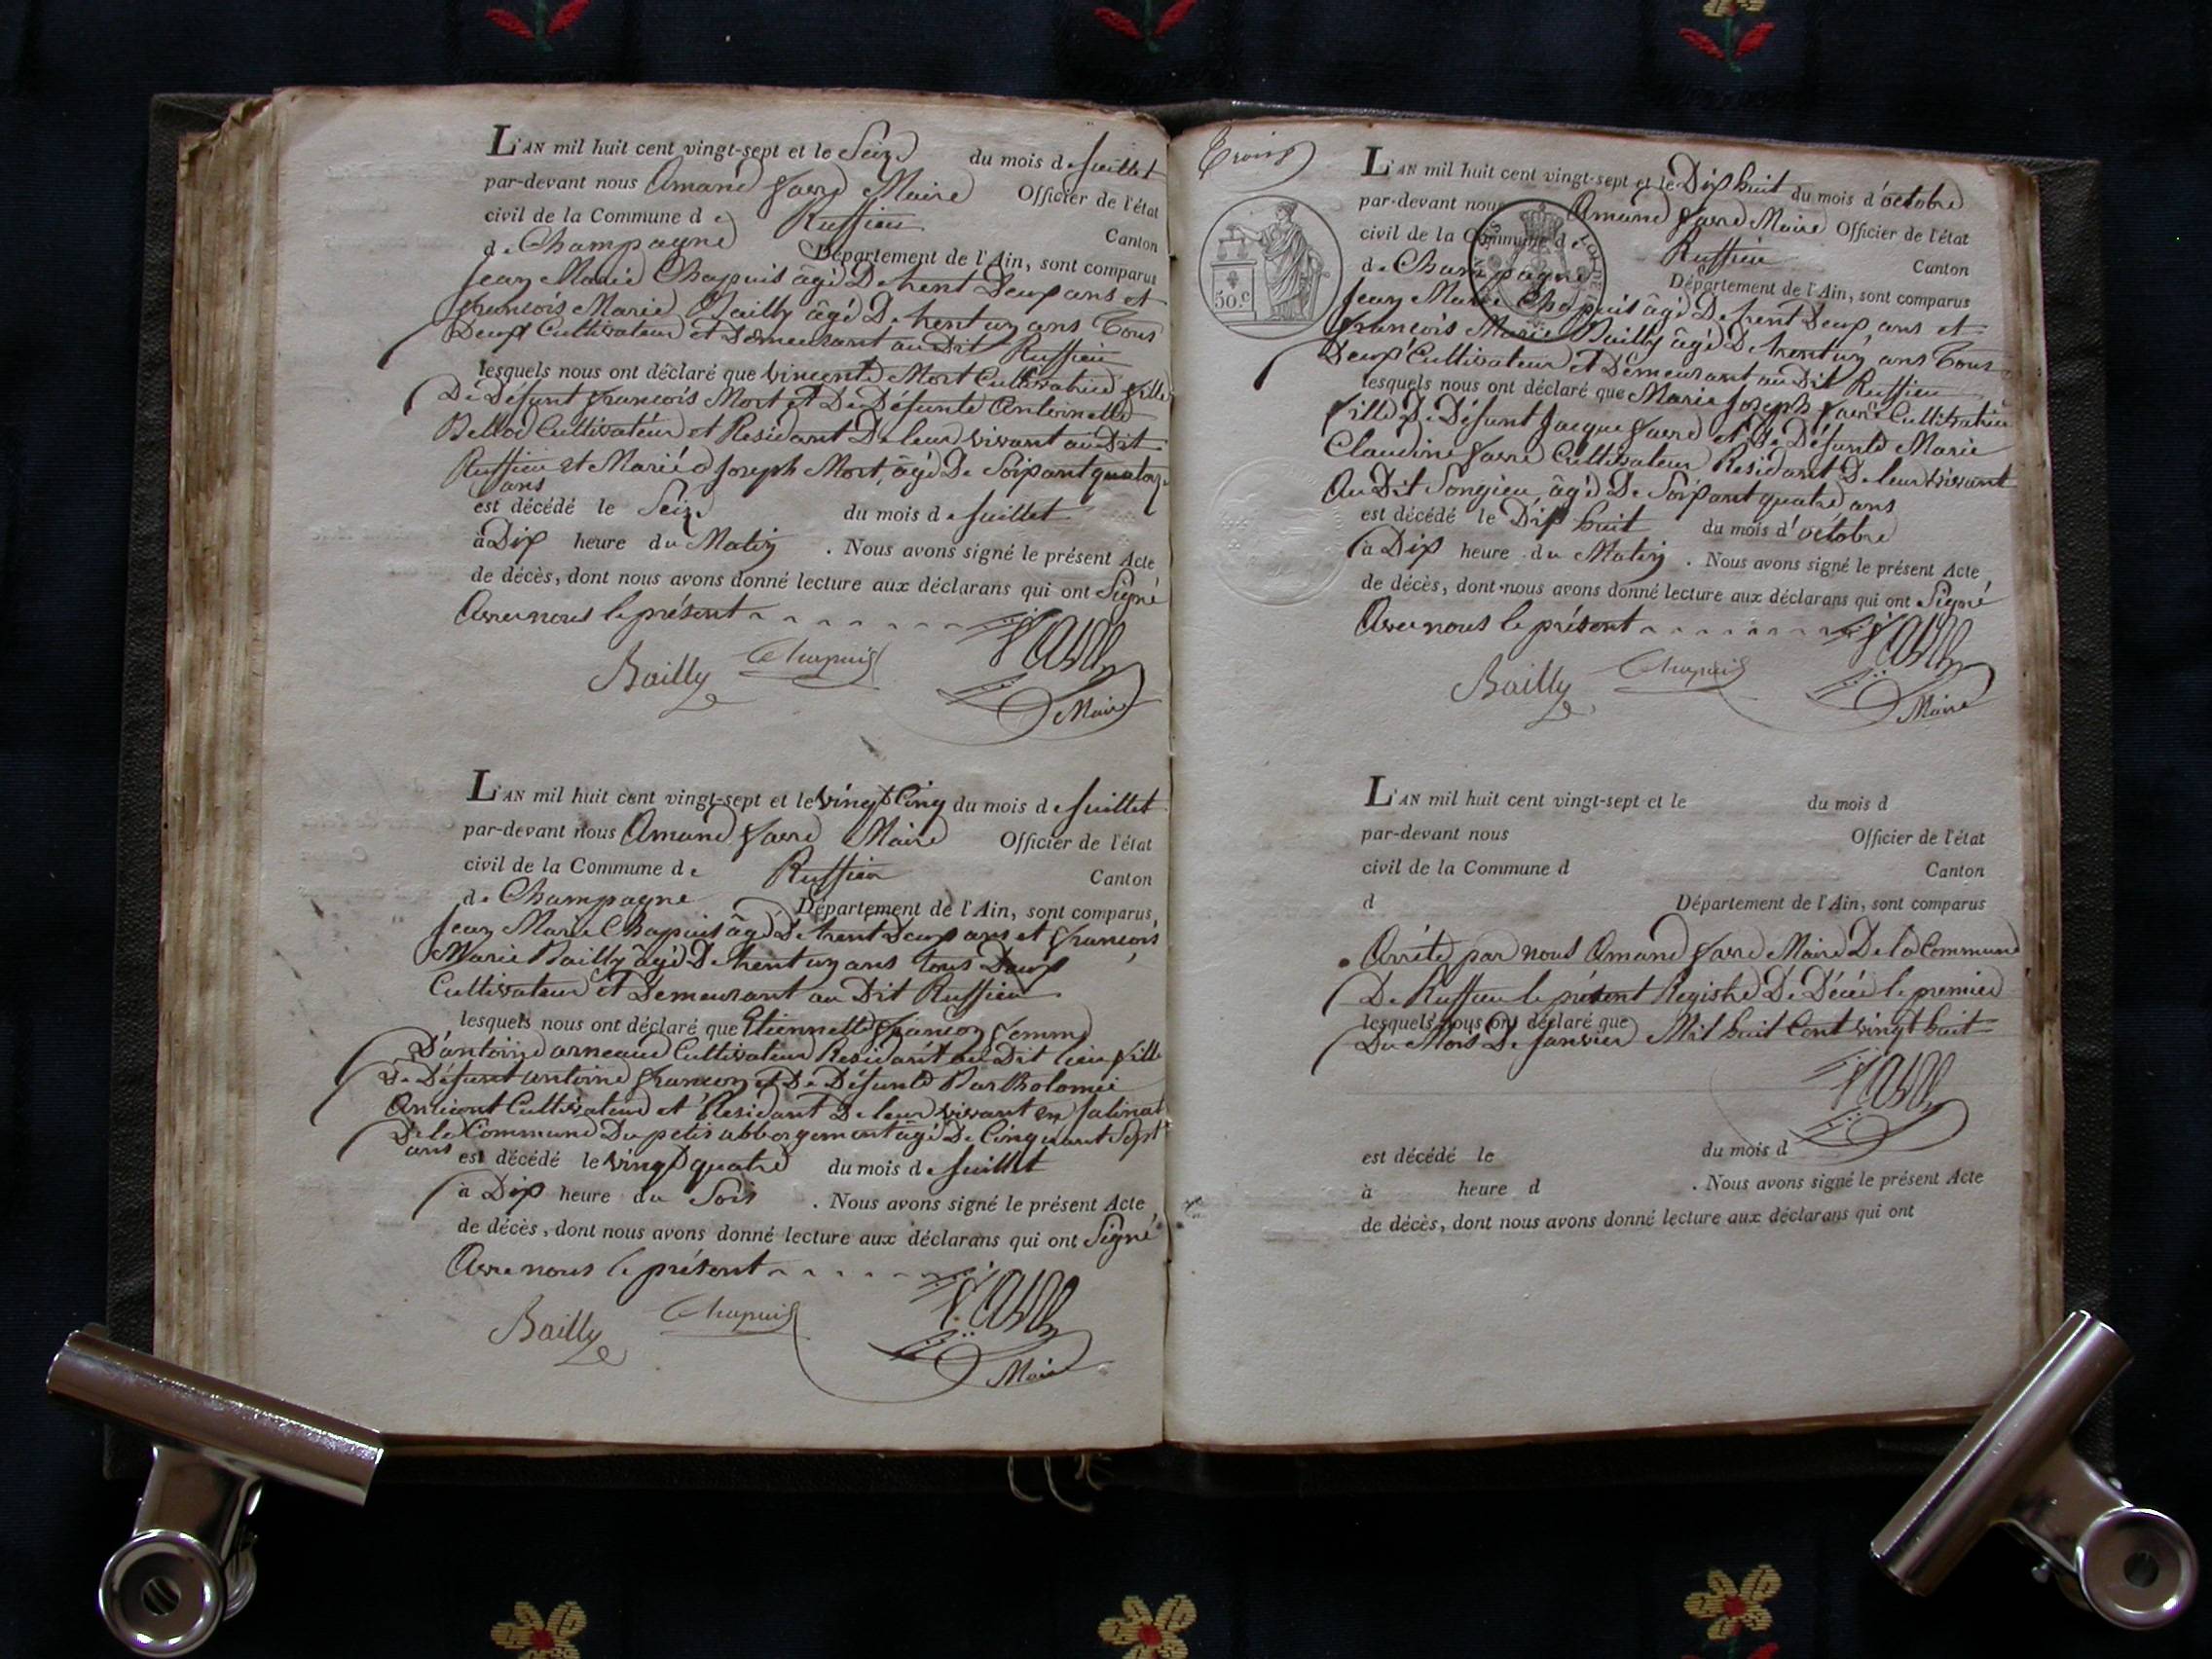 L'AN mil huit cent vingt-sept et le Seize du mois de Juillet
par-devant nous Amand favre Maire Officier de l'état
civil de la Commune de Ruffieu Canton
de Champagne Département de l'Ain, sont comparus
Jean Marie Chapuis âgé De trent Deux ans et
françois Marie Bailly âgé De trent un ans Tous
Deux Cultivateur et Demeurant au Dit Ruffieu
lesquels nous ont déclaré que vincente Mort Cultivatrice fille
De Défunt françois Mort et De Défunte Antoinette
Bellod Cultivateur et Residant De leur vivant au Dit
Ruffieu et Marié a Joseph Mort, âgé De Soixant quatorz
ans
est décédé le Seize du mois de Juillet
à Dix heure du Matin . Nous avons signé le présent Acte
de décès, dont nous avons donné lecture aux déclarans qui ont Signé
Avec nous le présent
Bailly Chapuis favre
Maire
L'AN mil huit cent vingt-sept et le vingt Cinq du mois de Juillet
par-devant nous Amand favre Maire Officier de l'état
civil de la Commune de Ruffieu Canton
de Champagne Département de l'Ain, sont comparus
Jean Marie Chapuis âgé De trent Deux ans et françois
Marie Bailly âgé De trent un ans tous Deux
Cultivateur et Demeurant au Dit Ruffieu
lesquels nous ont déclaré que Etiennette françon femme
D'antoine arneaud Cultivateur Residant au Dit lieu fille
De Défunt antoine françon et De Défunte Bartholomée
Cultivateur et Residant De leur vivant en
De la Commune Du petit abbergement âgé De Cinquant Sept
ans est décédé le vingt quatre du mois de Juillet
à Dix heure du Soir . Nous avons signé le présent Acte
de décès, dont nous avons donné lecture aux déclarans qui ont Signé
Avec nous le présent
Bailly Chapuis favre
Maire
Trois
50 c
L'AN mil huit cent vingt-sept et le Dix huit du mois d'octobre
par-devant nous Amand favre Maire Officier de l'état
civil de la Commune de Ruffieu Canton
de Champagne Département de l'Ain, sont comparus
Jean Marie Chapuis âgé De trent Deux ans et
françois Marie Bailly âgé De trent un ans Tous
Deux Cultivateur et Demeurant au Dit Ruffieu
lesquels nous ont déclaré que Marie Joseph favre Cultivatrice
fille De Défunt Jacque favre et De Défunte Marie
Claudine favre Cultivateur Residant De leur vivant
Au Dit Songieu, âgé De Soixant quatre ans
est décédé le Dix huit du mois d'octobre
à Dix heure du Matin . Nous avons signé le présent Acte
de décès, dont nous avons donné lecture aux déclarans qui ont Signé
Avec nous le présent
Bailly Chapuis favre
Maire
L'AN mil huit cent vingt-sept et le du mois d
par-devant nous Officier de l'état
civil de la Commune d Canton
d Département de l'Ain, sont comparus
Arrêté par nous Amand favre Maire De la Commune
De Ruffieu le présent Registre De Décée le premier
lesquels nous ont déclaré que
Du Mois De Janvier Mil huit Cent vingt huit
favre
est décédé le du mois d
à heure d . Nous avons signé le présent Acte
de décès, dont nous avons donné lecture aux déclarans qui ont